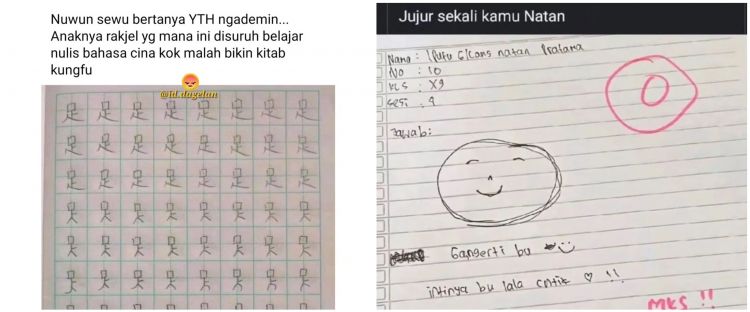 Nuwun sewu bertanya YTH ngademin...
Anaknya rakjel yg mana ini disuruh belajar
nulis bahasa cina kok malah bikin kitab
kungfu
@id.dagelan
足 足 足 足 足 足 足 足
足 足 足 足 足 足 足 足
足 足 足 足 足 足 足 足
Jujur sekali kamu Natan
Nama : I Putu natan Pratama
No : 10
Kls : X9
Sesi : 4
0
Jawab :
Gangerti bu
intinya bu lala cntik ♡ !!
MKS !!